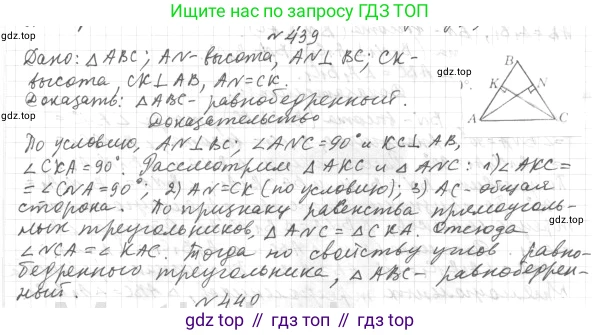 Ищите нас по запросу ГДЗ ТОП
№439
Дано: △ABC; AN-высота, AN⊥BC; CK-
высота, CK⊥AB, AN=CK.
Доказать: △ABC-равнобедренный.
Доказательство
По условию, AN⊥BC; ∠ANC=90° и KC⊥AB,
∠CKA=90°. Рассмотрим △AKC и △ANC: 1)∠AKC=
=∠CNA=90°; 2) AN=CK (по условию); 3) AC-общая
сторона. По признаку равенства прямоуголь-
ных треугольников, △ANC=△CKA. Отсюда
∠NCA=∠KAC. Тогда по свойству углов равно-
бедренного треугольника, △ABC-равнобедрен-
ный.
№440
B
K
N
A
C
gdz.top
gdz.top
gdz.top
gdz.top
gdz.top
gdz.top
gdz.top // гдз.топ // gdz.top